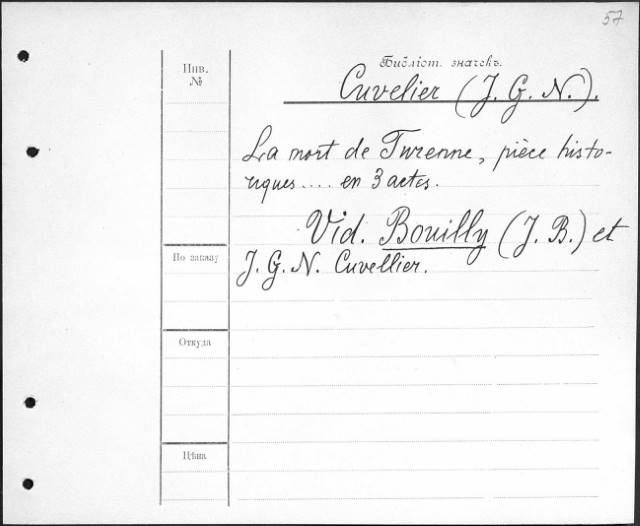 57
Библіот. значекъ.
Инв.
№
Cuvelier (J. G. N.).
La mort de Turenne, pièce histo-
riques.... en 3 actes.
Vid. Bouilly (J. B.) et
J. G. N. Cuvellier.
По заказу
Откуда
Цѣна